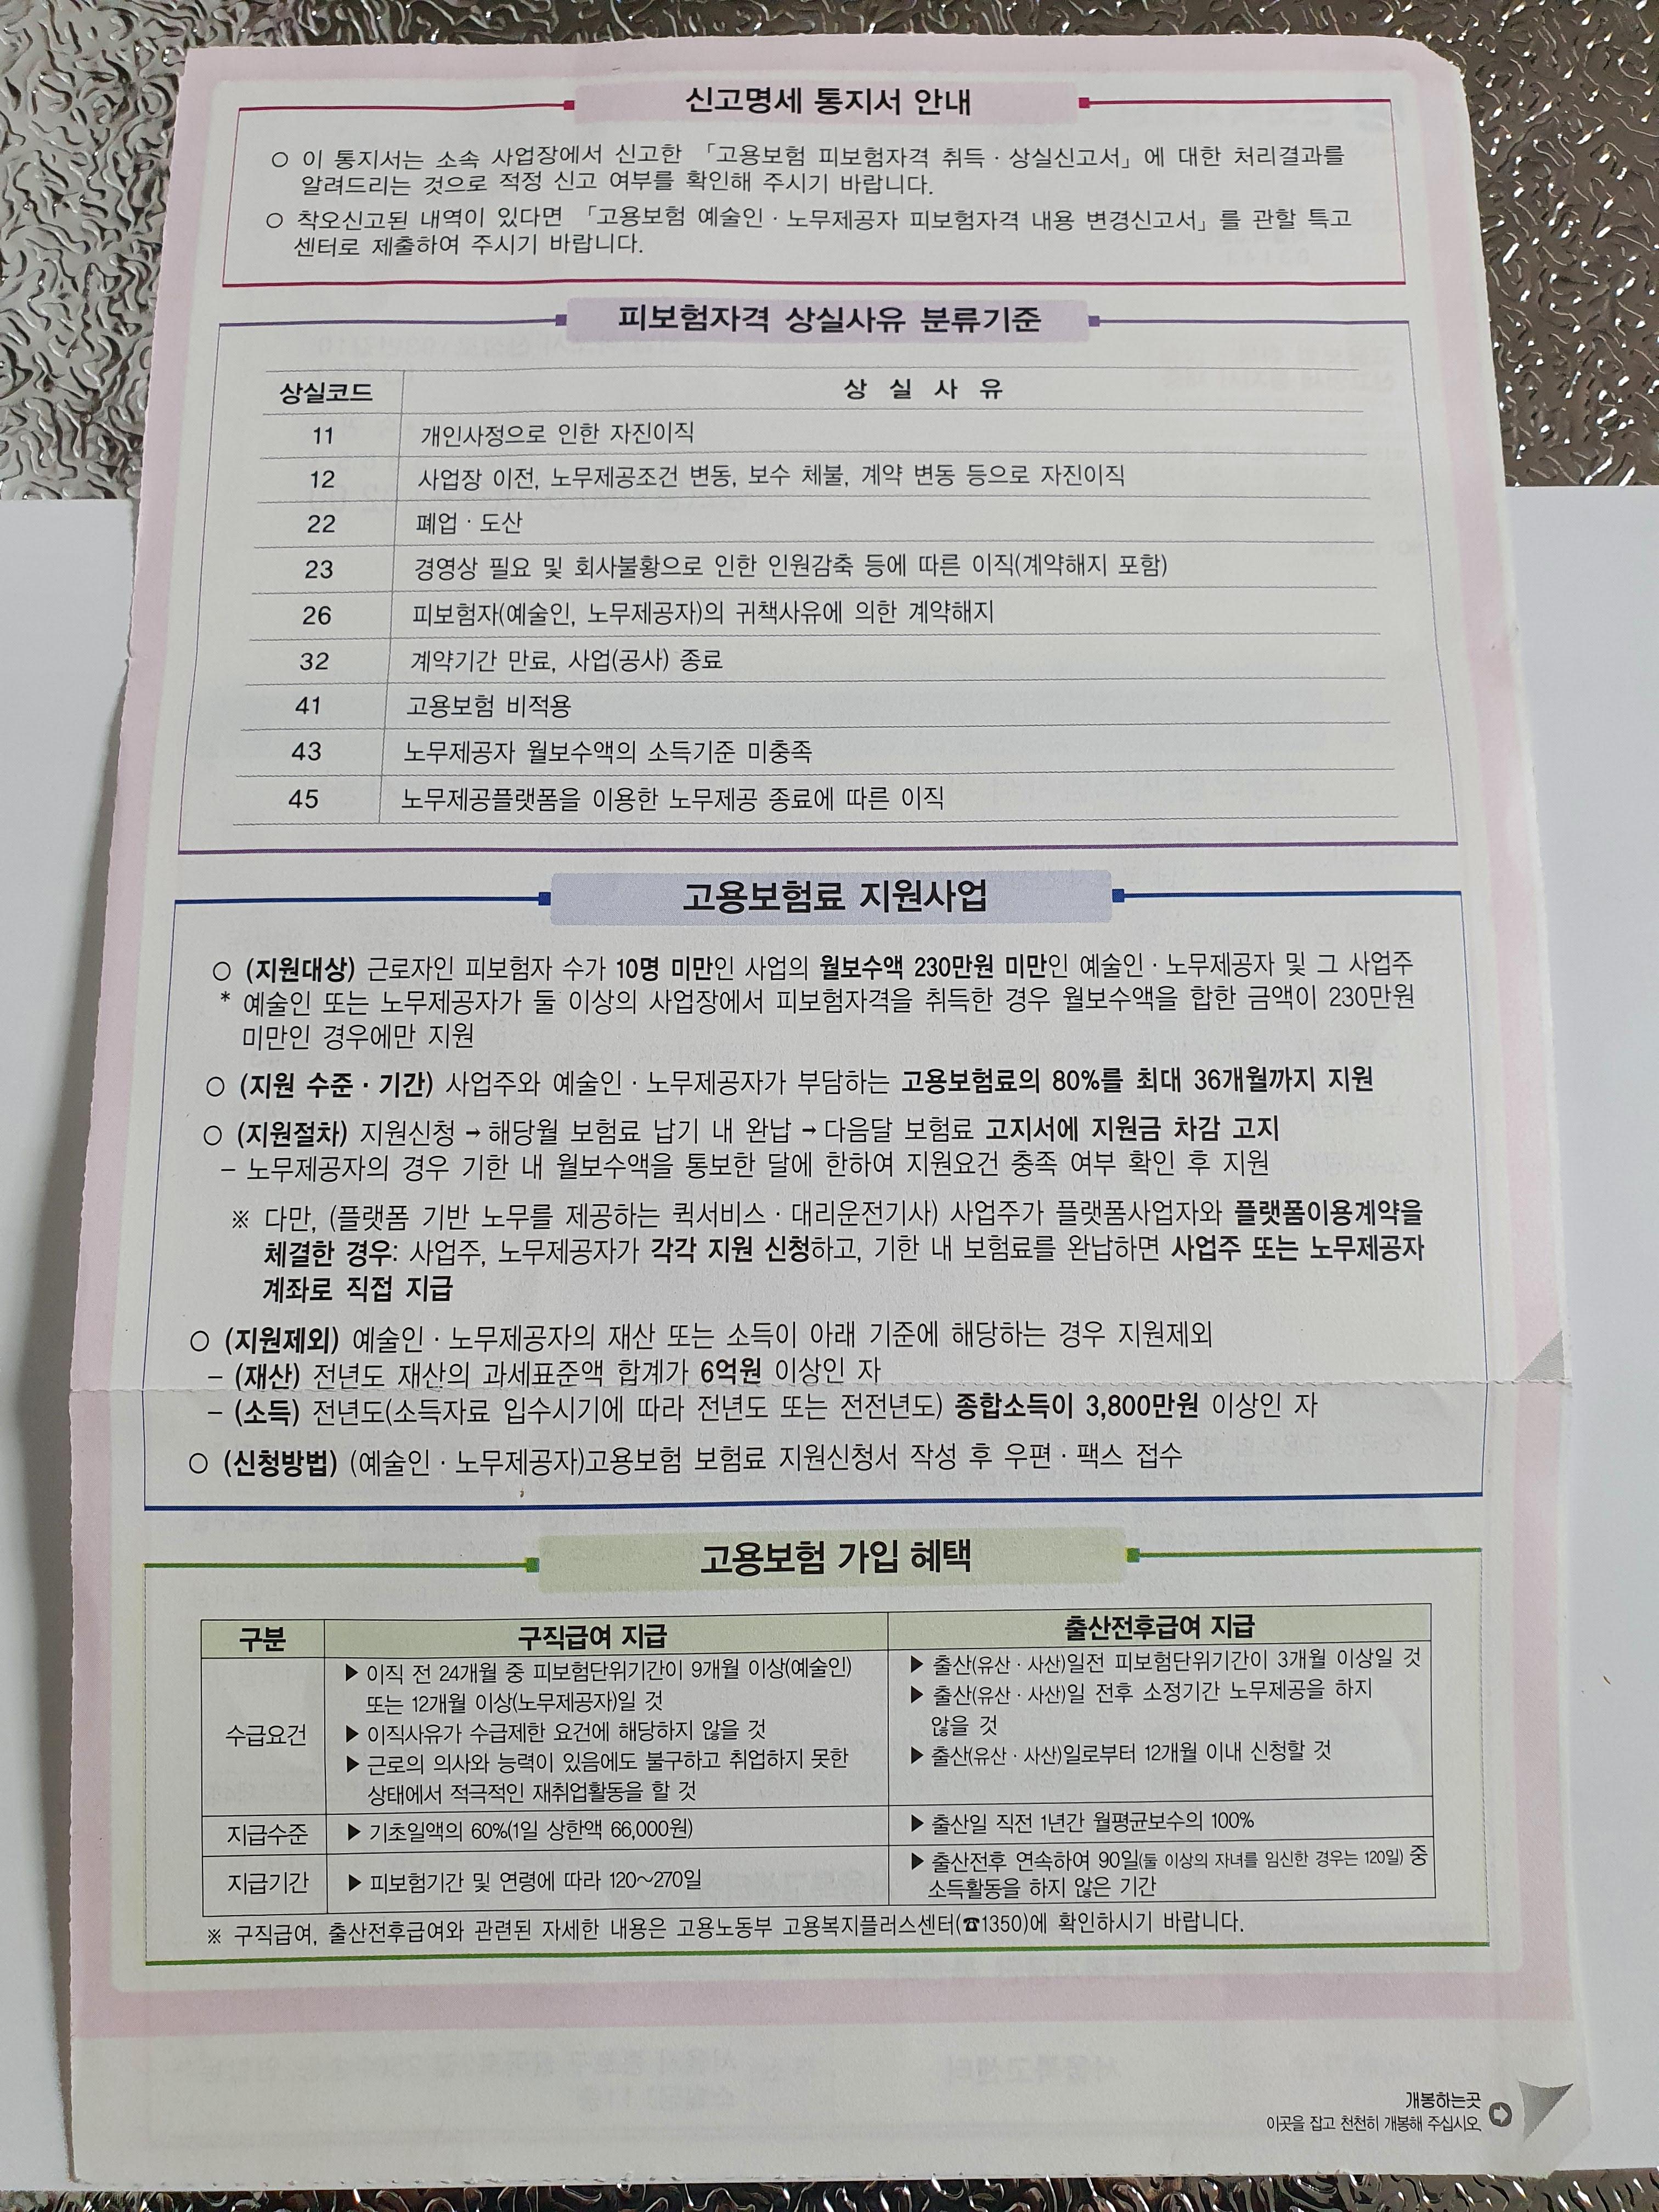 신고명세 통지서 안내
○ 이 통지서는 소속 사업장에서 신고한 「고용보험 피보험자격 취득 · 상실신고서」에 대한 처리결과를
알려드리는 것으로 적정 신고 여부를 확인해 주시기 바랍니다.
○ 착오신고된 내역이 있다면 「고용보험 예술인 · 노무제공자 피보험자격 내용 변경신고서」를 관할 특고
센터로 제출하여 주시기 바랍니다.
피보험자격 상실사유 분류기준
상실코드 상 실 사 유
11 개인사정으로 인한 자진이직
12 사업장 이전, 노무제공조건 변동, 보수 체불, 계약 변동 등으로 자진이직
22 폐업 · 도산
23 경영상 필요 및 회사불황으로 인한 인원감축 등에 따른 이직(계약해지 포함)
26 피보험자(예술인, 노무제공자)의 귀책사유에 의한 계약해지
32 계약기간 만료, 사업(공사) 종료
41 고용보험 비적용
43 노무제공자 월보수액의 소득기준 미충족
45 노무제공플랫폼을 이용한 노무제공 종료에 따른 이직
고용보험료 지원사업
○ (지원대상) 근로자인 피보험자 수가 10명 미만인 사업의 월보수액 230만원 미만인 예술인 · 노무제공자 및 그 사업주
* 예술인 또는 노무제공자가 둘 이상의 사업장에서 피보험자격을 취득한 경우 월보수액을 합한 금액이 230만원
미만인 경우에만 지원
○ (지원 수준 · 기간) 사업주와 예술인 · 노무제공자가 부담하는 고용보험료의 80%를 최대 36개월까지 지원
○ (지원절차) 지원신청 → 해당월 보험료 납기 내 완납 → 다음달 보험료 고지서에 지원금 차감 고지
– 노무제공자의 경우 기한 내 월보수액을 통보한 달에 한하여 지원요건 충족 여부 확인 후 지원
※ 다만, (플랫폼 기반 노무를 제공하는 퀵서비스 · 대리운전기사) 사업주가 플랫폼사업자와 플랫폼이용계약을
체결한 경우: 사업주, 노무제공자가 각각 지원 신청하고, 기한 내 보험료를 완납하면 사업주 또는 노무제공자
계좌로 직접 지급
○ (지원제외) 예술인 · 노무제공자의 재산 또는 소득이 아래 기준에 해당하는 경우 지원제외
– (재산) 전년도 재산의 과세표준액 합계가 6억원 이상인 자
– (소득) 전년도(소득자료 입수시기에 따라 전년도 또는 전전년도) 종합소득이 3,800만원 이상인 자
○ (신청방법) (예술인 · 노무제공자)고용보험 보험료 지원신청서 작성 후 우편 · 팩스 접수
고용보험 가입 혜택
구분 구직급여 지급 출산전후급여 지급
수급요건
▶ 이직 전 24개월 중 피보험단위기간이 9개월 이상(예술인)
또는 12개월 이상(노무제공자)일 것
▶ 이직사유가 수급제한 요건에 해당하지 않을 것
▶ 근로의 의사와 능력이 있음에도 불구하고 취업하지 못한
상태에서 적극적인 재취업활동을 할 것
▶ 출산(유산 · 사산)일전 피보험단위기간이 3개월 이상일 것
▶ 출산(유산 · 사산)일 전후 소정기간 노무제공을 하지
않을 것
▶ 출산(유산 · 사산)일로부터 12개월 이내 신청할 것
지급수준 ▶ 기초일액의 60%(1일 상한액 66,000원) ▶ 출산일 직전 1년간 월평균보수의 100%
지급기간 ▶ 피보험기간 및 연령에 따라 120~270일
▶ 출산전후 연속하여 90일(둘 이상의 자녀를 임신한 경우는 120일) 중
소득활동을 하지 않은 기간
※ 구직급여, 출산전후급여와 관련된 자세한 내용은 고용노동부 고용복지플러스센터(☎1350)에 확인하시기 바랍니다.
개봉하는곳
이곳을 잡고 천천히 개봉해 주십시오.